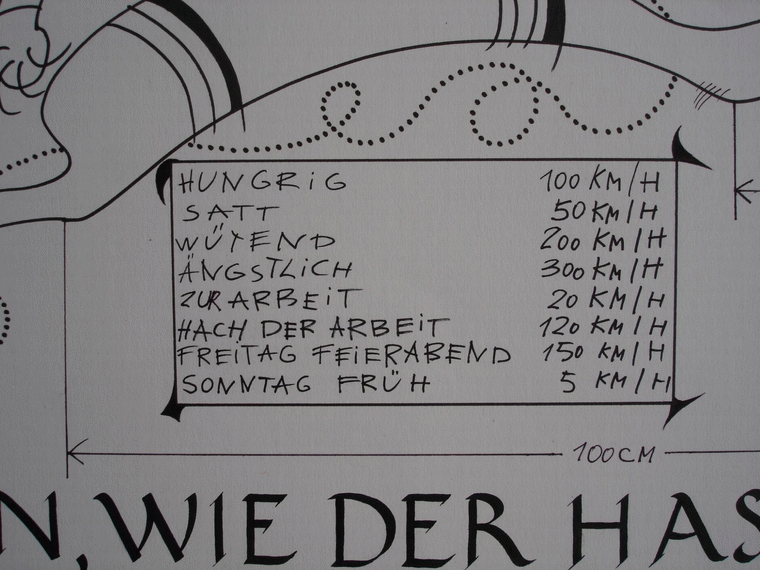 HUNGRiG 100 KM/H
SATT 50 KM/H
WÜTEND 200 KM/H
ÄNGSTLiCH 300 KM/H
ZUR ARBEiT 20 KM/H
NACH DER ARBEiT 120 KM/H
FREiTAG FEiERABEND 150 KM/H
SONNTAG FRÜH 5 KM/H
100CM
N, WIE DER HAS